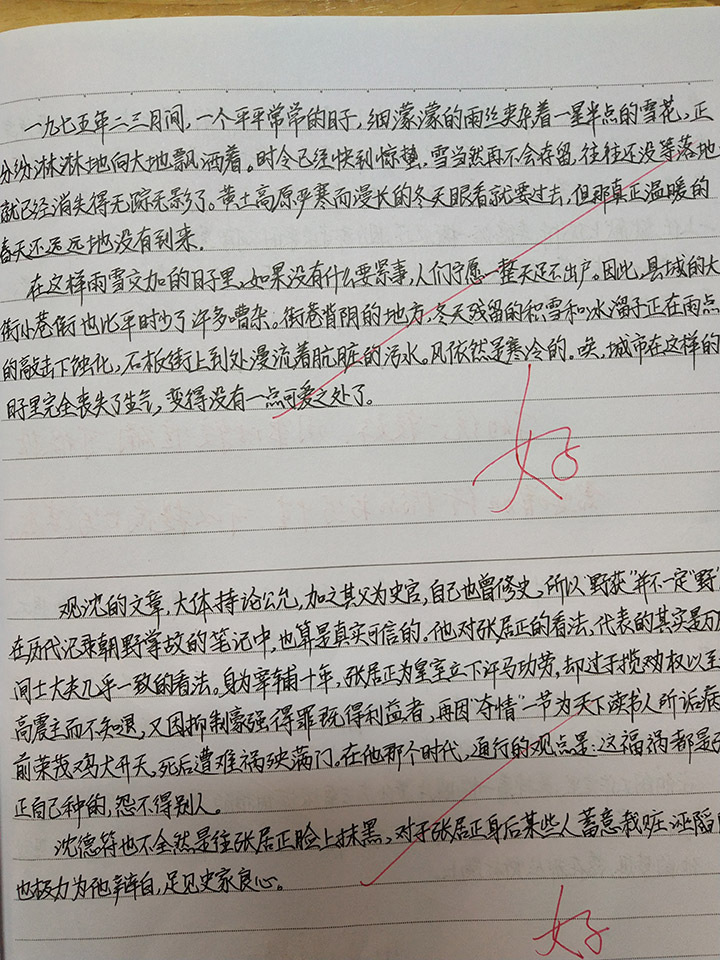 一九七五年二三月间，一个平平常常的日子，细濛濛的雨丝夹杂着一星半点的雪花，正
纷纷淋淋地向大地飘洒着。时令已经快到惊蛰，雪当然再不会存留，往往还没等落地
就已经消失得无踪无影了。黄土高原严寒而漫长的冬天眼看就要过去，但那真正温暖的
春天还远远地没有到来。
在这样雨雪交加的日子里，如果没有什么要紧事，人们宁愿一整天足不出户。因此，县城的大
街小巷街也比平时少了许多嘈杂。街巷背阴的地方，冬天残留的积雪和冰溜子正在雨点
的敲击下蚀化，石板街上到处漫流着肮脏的污水。风依然是寒冷的。唉，城市在这样的
日子里完全丧失了生气，变得没有一点可爱之处了。
好
观沈的文章，大体持论公允，加之其父为史官，自己也曾修史，所以"野获"并不一定"野"
在历代记录朝野掌故的笔记中，也算是真实可信的。他对张居正的看法，代表的其实是万历
间士大夫几乎一致的看法。身为宰辅十年，张居正为皇室立下汗马功劳，却过于揽劝权以至
高震主而不知退，又因抑制豪强得罪既得利益者，再因"夺情"一节为天下读书人所诟病
前荣茂鸡犬升天，死后遭难祸殃满门。在他那个时代，通行的观点是：这福祸都是张
正自己种的，怨不得别人。
沈德符也不全然是往张居正脸上抹黑，对于张居正身后某些人蓄意栽赃、诬蹈
也极力为他辩白，足见史家良心。
好